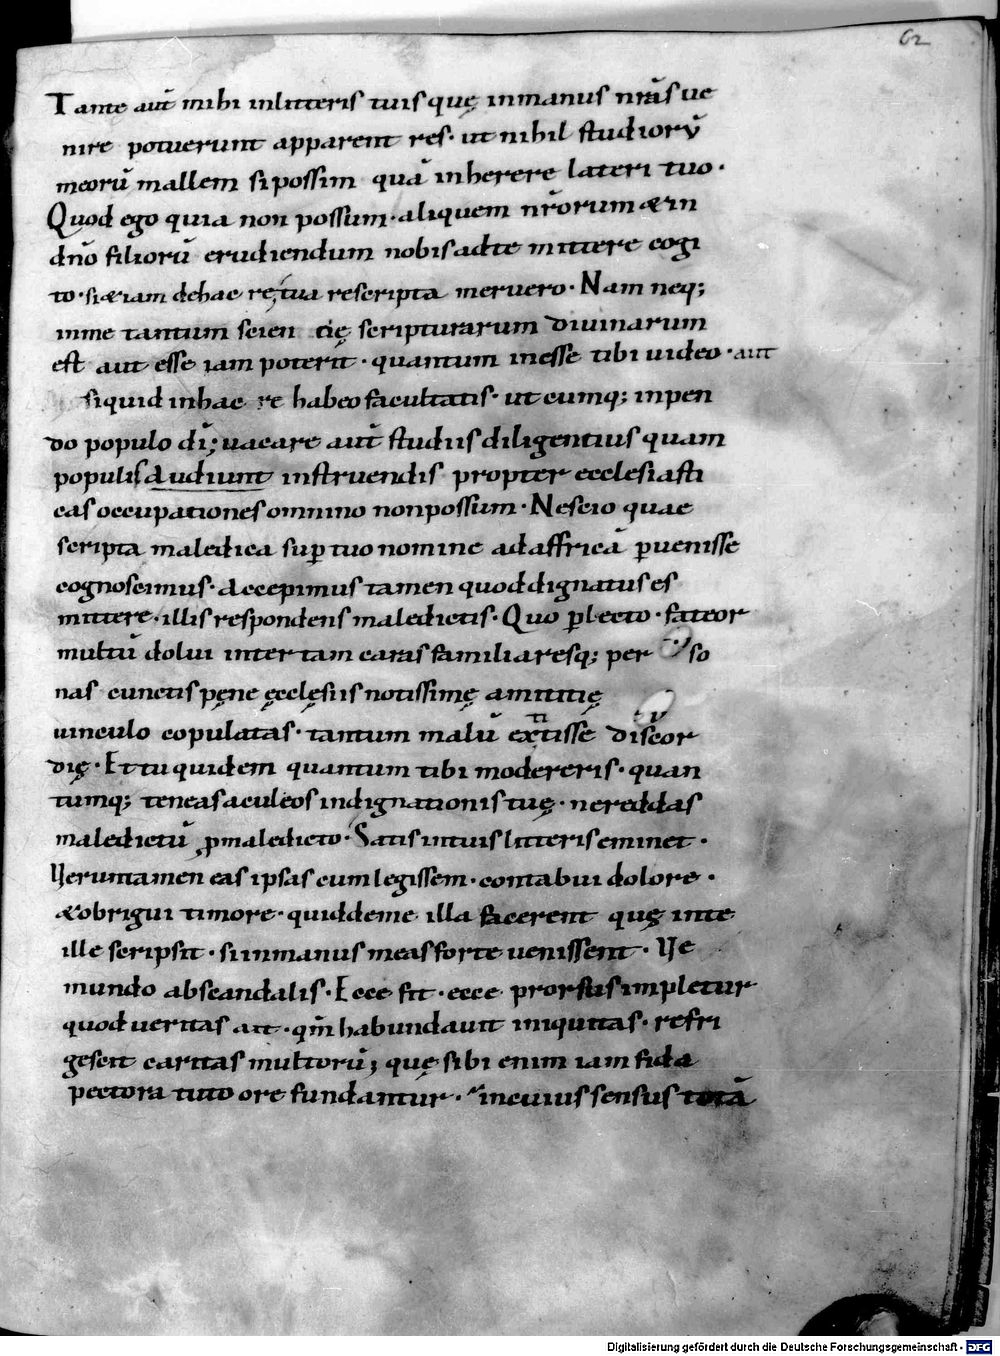 62
Tante aut̄ mihi inlitteris tuis quę inmanus nr̄as ue
nire potuerunt apparent res· ut nihil studiorū
meorū mallem sipossim quā inherere lateri tuo·
Quod ego quia non possum· aliquem nr̄orum & in
dn̄o filiorū erudiendum nobis adte mittere cogi
to· si&iam dehac re tua rescripta meruero· Nam neq;
inme tantum scien tię scripturarum diuinarum
est aut esse iam poterit· quantum inesse tibi uideo· aut
siquid inhac re habeo facultatis· utcumq; inpen
do populo dī; uacare aut̄ studiis diligentius quam
populis audiunt instruendis propter ecclesiasti
cas occupationes omnino nonpossum· Nescio quae
scripta maledica sup̄ tuo nomine adaffricā p̄uenisse
cognoscimus· accepimus tamen quod dignatus es
mittere· illis respondens maledictis· Quo p̄lecto· fateor
multū dolui inter tam caras familiaresq; per so
nas cunctis pęne ęcclesiis notissimę amicitię
uinculo copulatas· tantum malū extitisse discor
dię· Et tu quidem quantum tibi modereris· quan
tumq; teneas aculeos indignationis tuę· nereddas
maledictū p̄maledicto· Satis intuis litteris eminet·
Ueruntamen eas ipsas cum legissem· contabui dolore·
&obrigui timore· quid deme illa facerent quę inte
ille scripsit· si inmanus meas forte uenissent· Ue
mundo abscandalis· Ecce fit· ecce prorsus impletur
quod ueritas ait· qm̄ habundauit iniquitas· refri
gescit caritas multorū; quę sibi enim iam fida
pectora tuto ore fundantur· incuius sensus totā
Digitalisierung gefördert durch die Deutsche Forschungsgemeinschaft - DFG